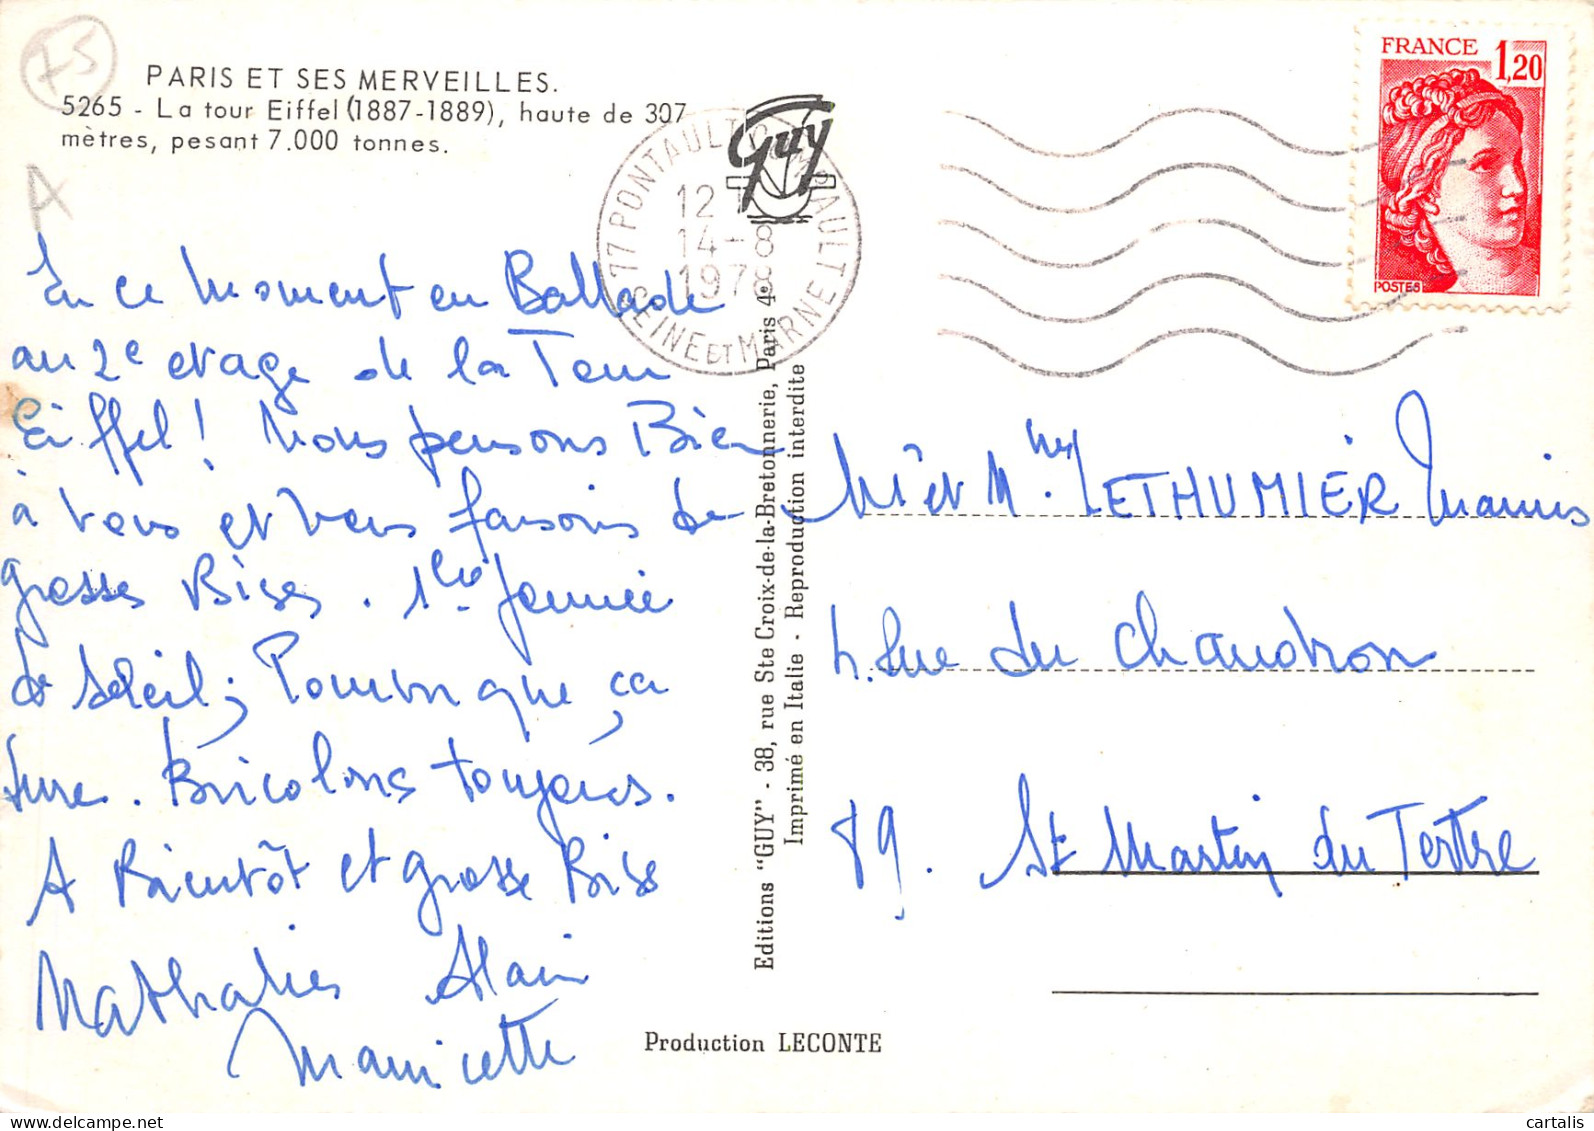 75
PARIS ET SES MERVEILLES.
5265 - La tour Eiffel (1887-1889), haute de 307
mètres, pesant 7.000 tonnes.
A
Guy
77 PONTAULT COMBAULT
12 H
14-8
1978
SEINE ET MARNE
FRANCE 1,20
POSTES
En ce moment en Ballade
au 2e etage de la Tour
Eiffel ! Nous pensons Bien
à vous et vous faisons de
grosses Bises. 1ère Journée
de soleil; Pourvu que ça
dure. Bricolons toujours.
A Bientôt et grosse Bises
Nathalie Alain
Mauricette
Editions "GUY" - 38, rue Ste Croix-de-la-Bretonnerie, Paris 4e
Imprimé en Italie - Reproduction interdite
Mr et Mme LETHUMIER Maurice
4. Rue du Chaudron
89. St Martin du Tertre
Production LECONTE
cartalis